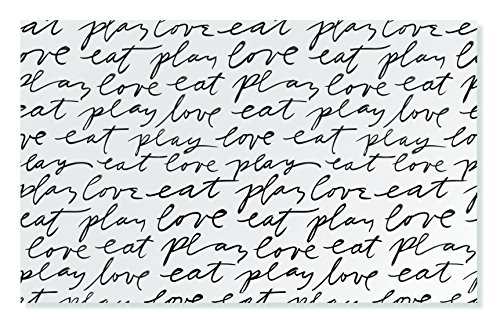 love eat play love eat play
love eat play love eat
play love eat play love eat
eat play love eat play
love eat play love eat play
play eat love play eat love
play love eat play love eat
eat play love eat play
love eat play love eat
play love eat play love